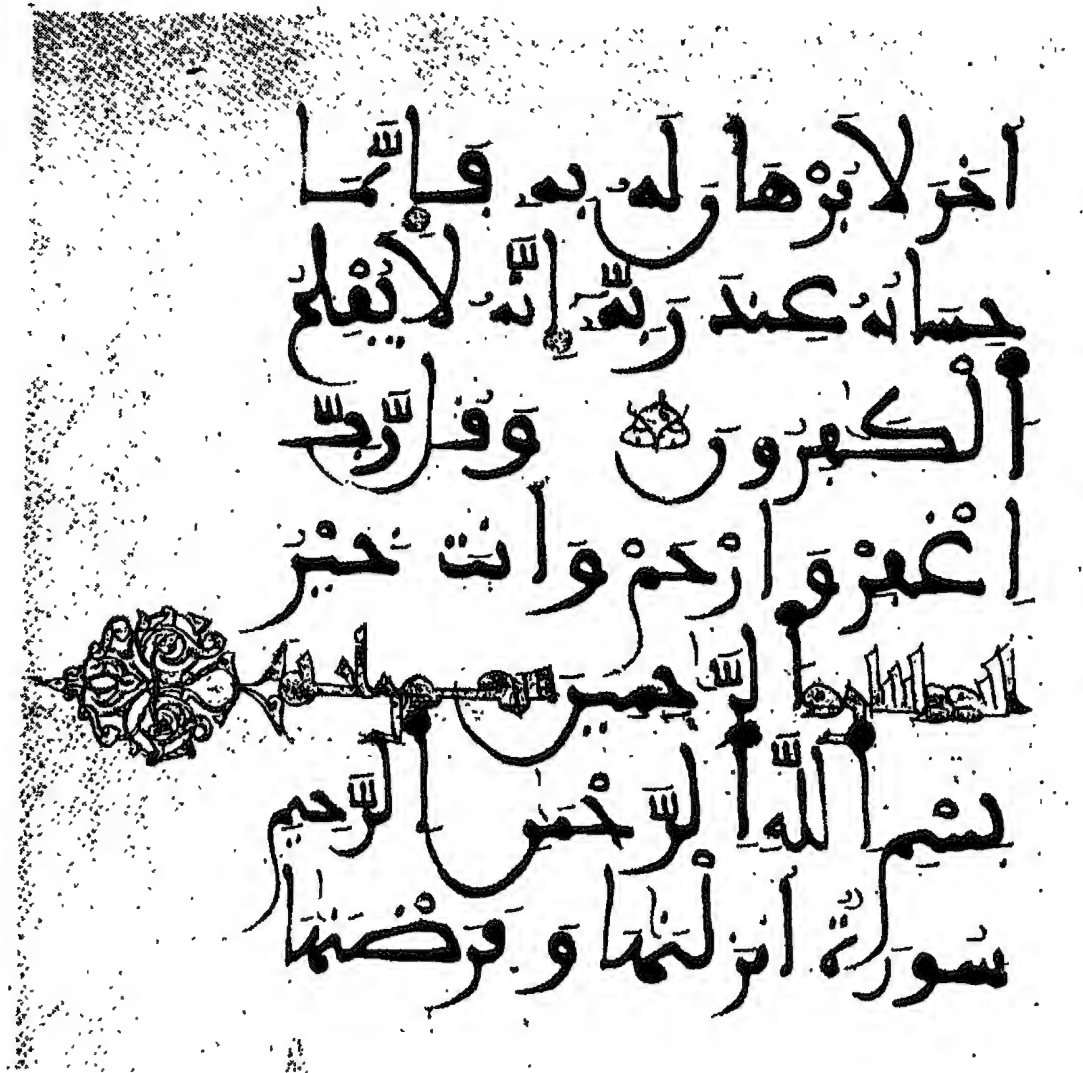 اخَرَ لَا بُرْهَٰنَ لَهُۥ بِهِۦ فَإِنَّمَا
حِسَابُهُۥ عِندَ رَبِّهِۦٓ إِنَّهُۥ لَا يُفْلِحُ
ٱلْكَٰفِرُونَ وَقُل رَّبِّ
ٱغْفِرْ وَٱرْحَمْ وَأَنتَ خَيْرُ
ٱلرَّٰحِمِينَ
بِسْمِ ٱللَّهِ ٱلرَّحْمَٰنِ ٱلرَّحِيمِ
سُورَةٌ أَنزَلْنَٰهَا وَفَرَضْنَٰهَا